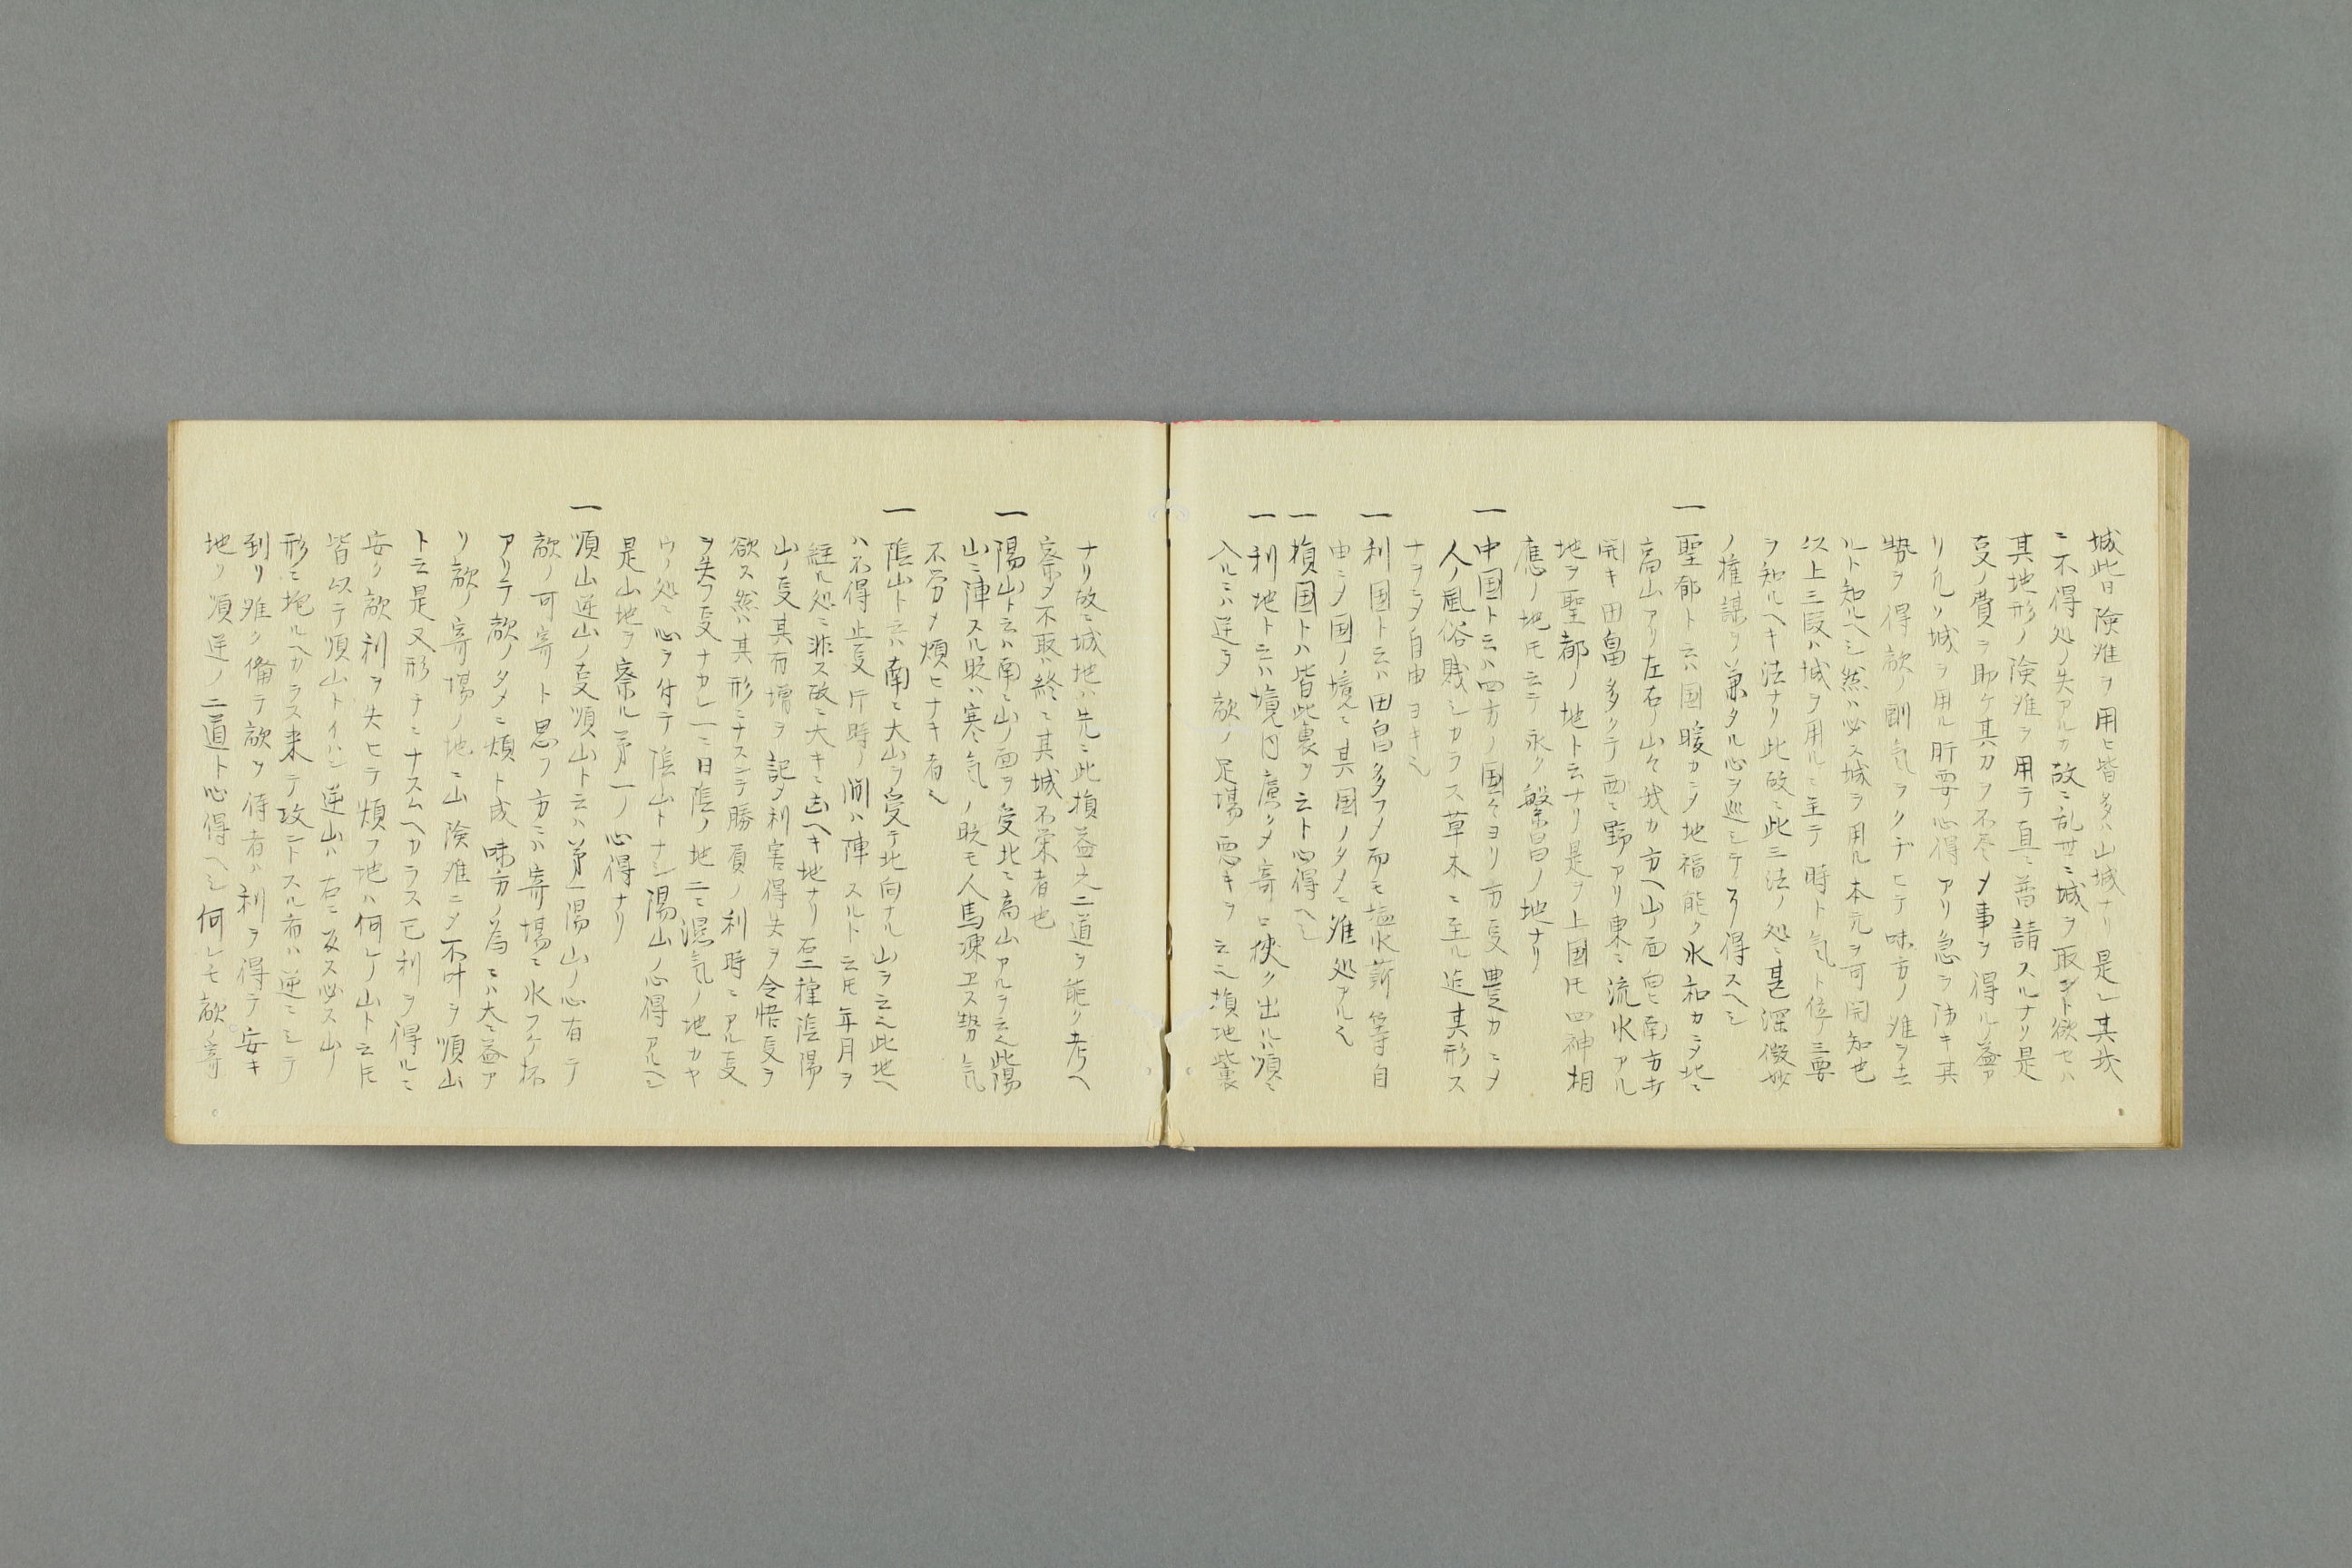 城皆険难ヲ用ヒ皆多ハ山城ナリ是レ其我
ニ不得処ノ失アルカ故ニ乱世ニ城ヲ取ント欲セハ
其地形ノ険难ヲ用テ直ニ普請スルナリ是
支ノ費ヲ助ケ其刀ヲ不尽〆事ヲ得ル益ア
リ凡ソ城ヲ用ル肝要ノ心得アリ急ヲ防キ其
勢ヲ得敵ノ剛気ヲクヂヒテ味方ノ难ヲ去
ルト知ルヘシ然ハ必ス城ヲ用ル本元ヲ可聞知也
以上三段ハ城ヲ用ルニ至テ時ト気ト位ノ三要
ヲ知ルヘキ法ナリ此故ニ此三法ノ処ニ甚深微妙
ノ権謀ヲ兼タル心ヲ巡シテ了得スヘシ
一 聖都ト云ハ国暖カニ〆地福能ク水和カニ〆北ニ
高山アリ左右ノ山々我カ方ヘ山ノ面向ニ南方打
開キ田畠多クテ西ニ野アリ東ニ流水アル
地ヲ聖都ノ地ト云ナリ是ヲ上國ト𪜈四神相
應ノ地𪜈云テ永ク繁昌ノ地ナリ
一 中国ト云ハ四方ノ国々ヨリ万支豊カニ〆
人ノ風俗賎シカラス草木ニ至ル迄其形ス
ナヲニ〆自由ヨキ也
一 利国ト云ハ田畠多フ〆而モ塩水薪等自
由ニ〆国ノ境ニ其国ノタメニ难処アル也
一 損国トハ皆此裏ヲ云ト心得ヘシ
一 利地ト云ハ境内廣ク〆寄ヒ狭ク出ルハ順ニ
入ルニハ逆〆敵ノ足場悪キヲ云也損地ハ此裏
ナリ故ニ城地ハ先ニ此損益之二道ヲ能ク考ヘ
察〆不取ハ終ニ其城不栄者也
一 陽山ト云ハ南ニ山ノ面ヲ受北ニ高山アルヲ云也此陽
山ニ陣スル時ハ寒気ノ時モ人馬凍ヱス勢気
不労〆煩ヒナキ者也
一 陰山ト云ハ南ニ大山ヲ受テ北向ナル山ヲ云也此地ヘ
ハ不得止支片時ノ間ハ陣スルト云𪜈年月ヲ
経ル処ニ非ス故ニ大キニ忌ヘキ地ナリ右二種陰陽
山ノ支其有増ヲ記〆利害得失ヲ令悟支ヲ
欲ス然ハ其形ニナスンテ勝負ノ利時ニアル支
ヲ失フ支ナカレ一ニ日陰ノ地二ニ湿気ノ地カヤ
ウノ処ニ心ヲ付テ陰山トナシ陽山ノ心得アルヘシ
是山地ヲ察ル第一ノ心得ナリ
一 順山逆山ノ支順山ト云ハ第一陽山ノ心有テ
敵ノ可寄ト思フ方ニハ寄場ニ水フケ抔
アリテ敵ノタメニ煩ト成味方ノ為ニハ大ニ益ア
リ敵ノ寄場ノ地ニ山険难ニ〆不叶ヲ順山
ト云是又形チニナスムヘカラス己利ヲ得ルニ
安ク敵利ヲ失ヒテ煩フ地ハ何レノ山ト云𪜈
皆以テ順山トイハン逆山ハ右ニ反ス必ス山ノ
形ニ拖ルヘカラス来テ攻ントスル有ハ逆ニシテ
到リ难ク備テ敵ヲ待者ハ利ヲ得テ安キ
地ノ順逆ノ二道ト心得ヘシ何レモ敵ノ寄